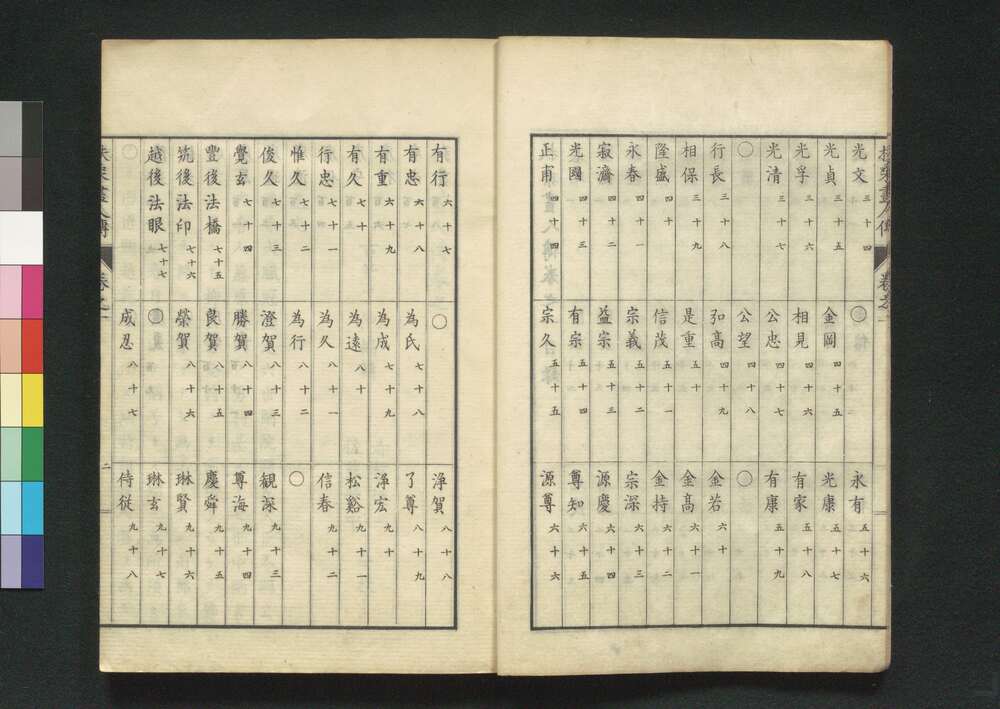 扶桑畫人傳 卷之一
光文 三十四
光貞 三十五
光孚 三十六
光清 三十七
○
行長 三十八
相保 三十九
隆盛 四十
永春 四十一
寂濟 四十二
光國 四十三
正甫 四十四
○
金岡 四十五
相見 四十六
公忠 四十七
公望 四十八
弘高 四十九
是重 五十
信茂 五十一
宗義 五十二
益宗 五十三
有宗 五十四
宗久 五十五
永有 五十六
光康 五十七
有家 五十八
有康 五十九
○
金若 六十
金高 六十一
金持 六十二
宗深 六十三
源慶 六十四
尊知 六十五
源尊 六十六
有行 六十七
有忠 六十八
有重 六十九
有久 七十
行忠 七十一
惟久 七十二
俊久 七十三
覺玄 七十四
豐後法橋 七十五
筑後法印 七十六
越後法眼 七十七
○
○
為氏 七十八
為成 七十九
為遠 八十
為久 八十一
為行 八十二
澄賀 八十三
勝賀 八十四
良賀 八十五
榮賀 八十六
○
成忍 八十七
淨賀 八十八
了尊 八十九
淨宏 九十
松谿 九十一
信春 九十二
○
観深 九十三
尊海 九十四
慶舜 九十五
琳賢 九十六
琳玄 九十七
侍從 九十八
扶桑畫人傳 卷之一 二